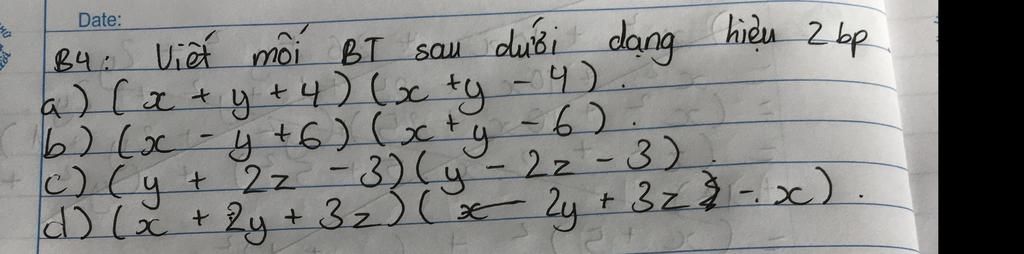 Date:
B4: Viết mỗi BT sau dưới dạng hiệu 2 bp
a) (x + y + 4) (x + y - 4).
b) (x - y + 6) (x + y - 6).
c) (y + 2z - 3) (y - 2z - 3).
d) (x + 2y + 3z) (2y + 3z - x).